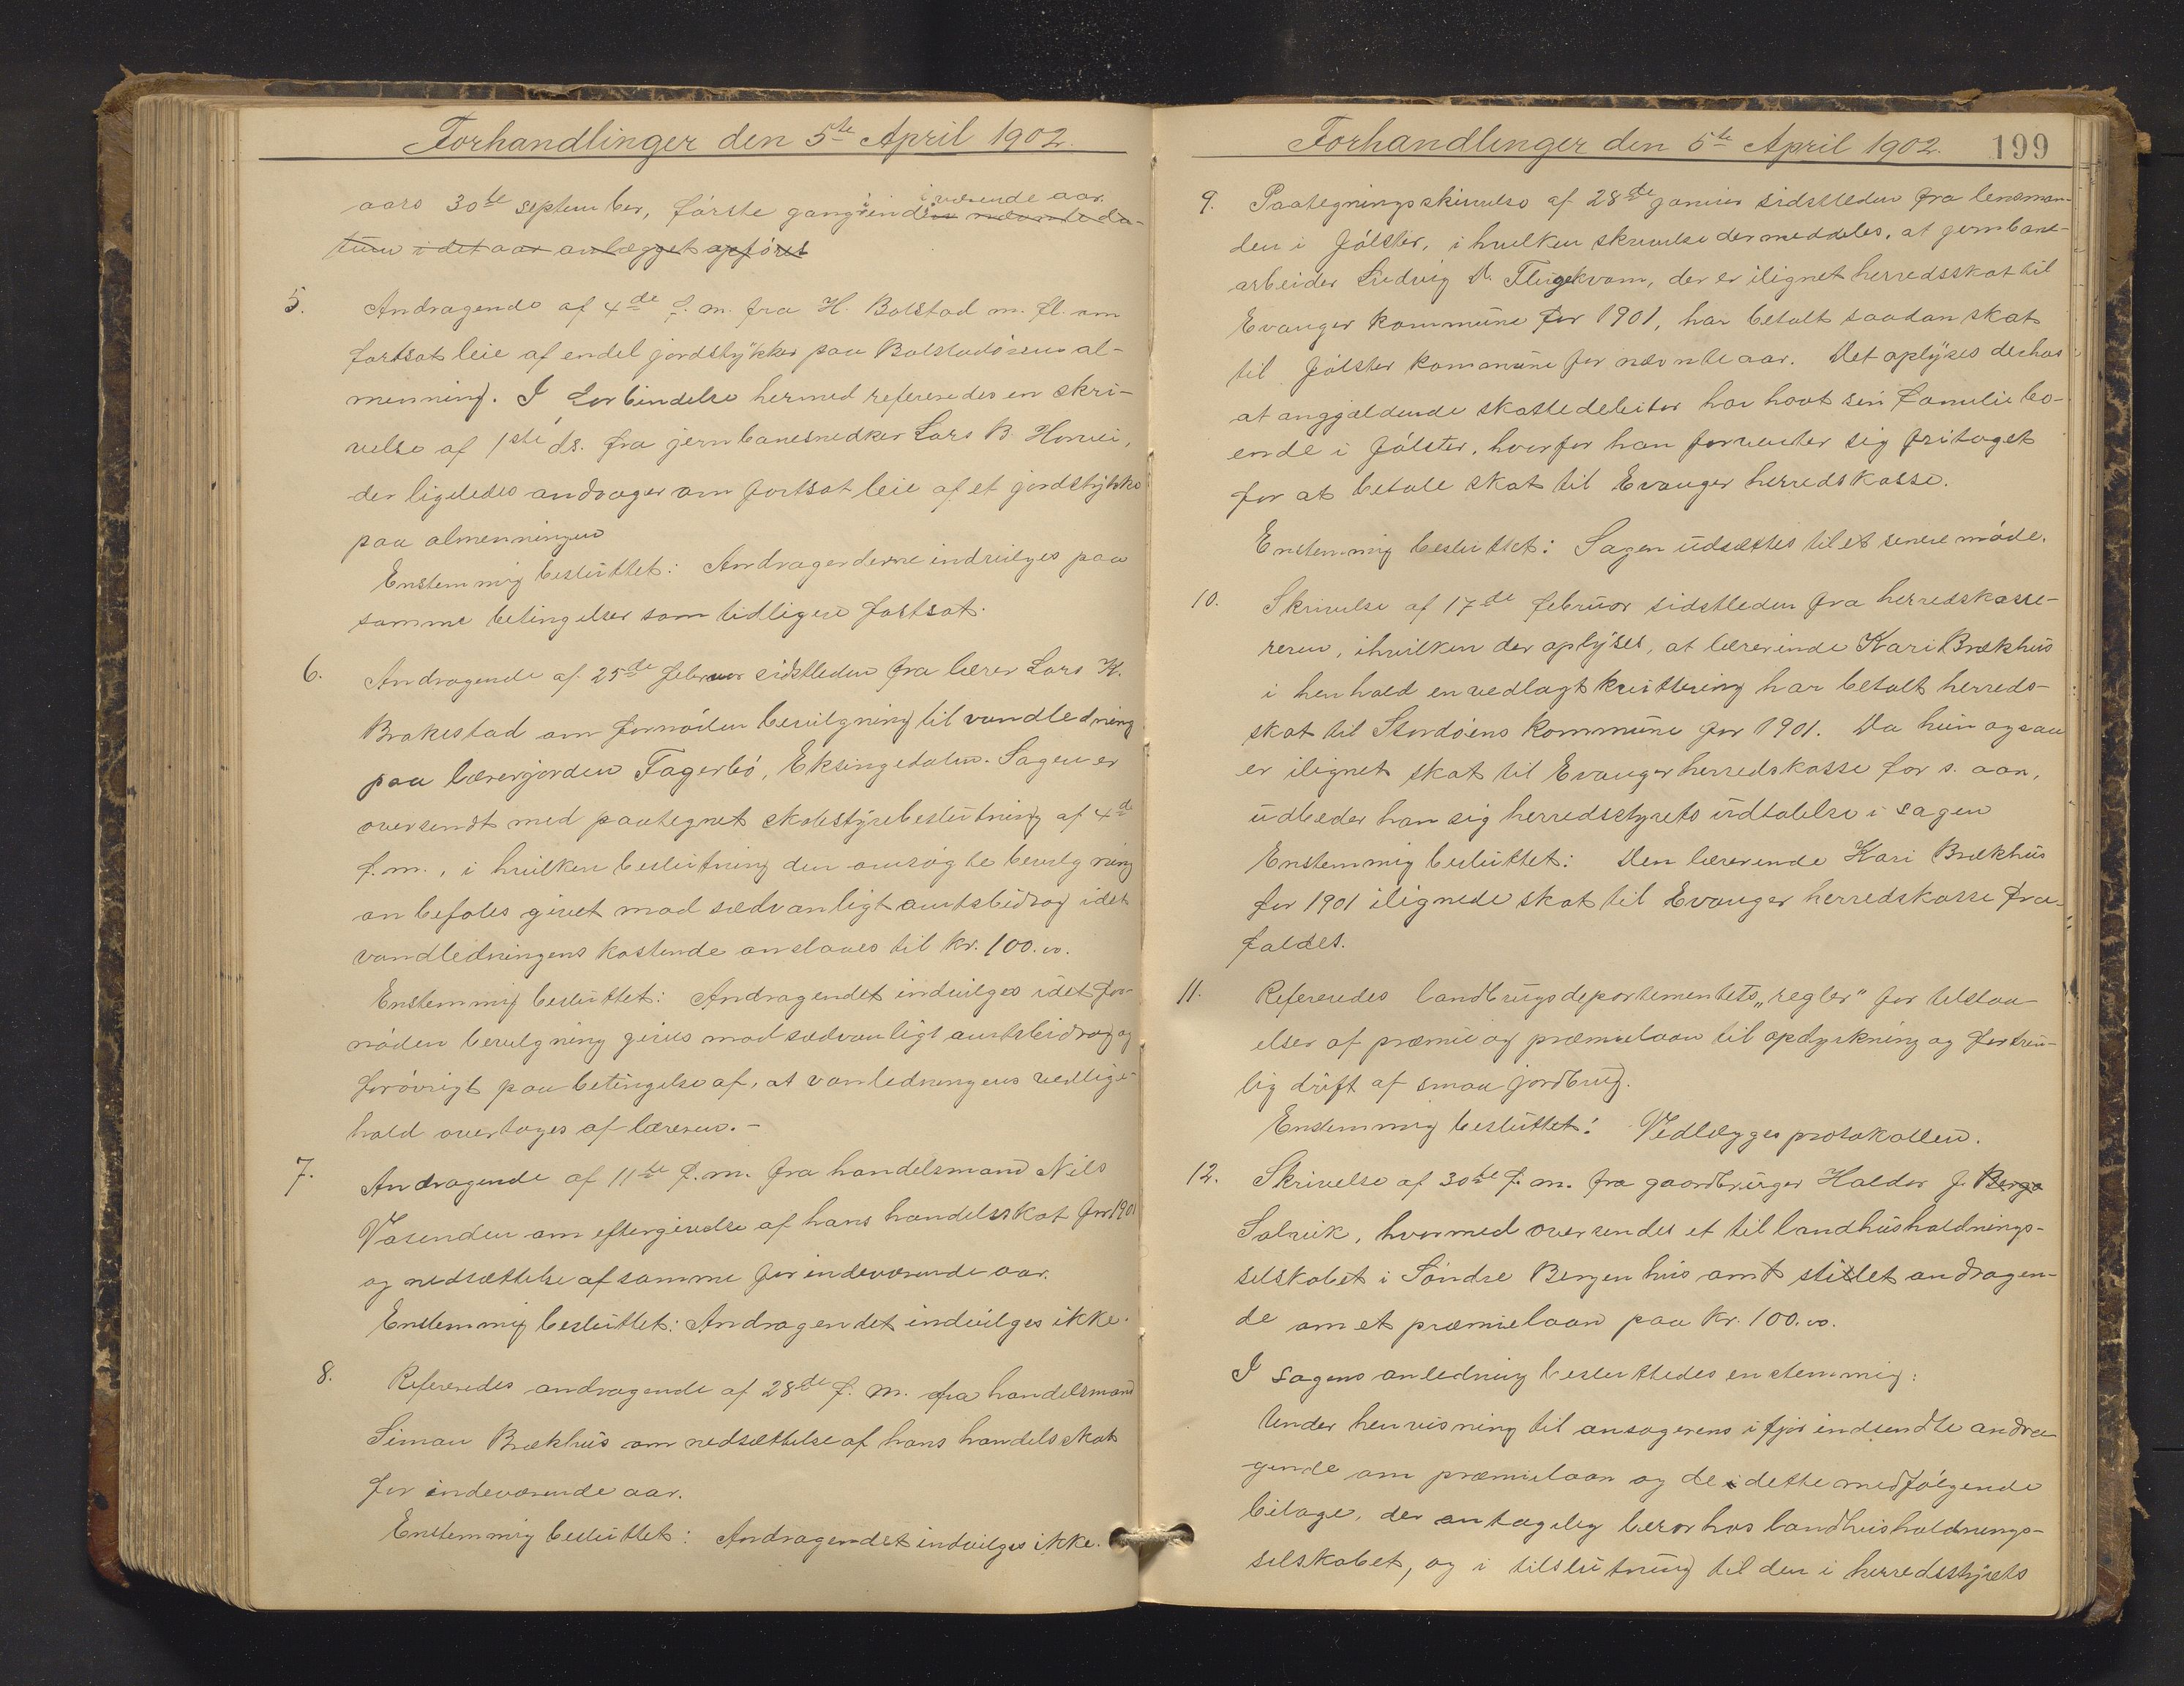 Forhandlinger den 5te April 1902.
aars 30te september, første gang i indeværende aar.
tum i det aar anlægget opføres
5. Andragende af 4de f. m. fra H. Bolstad m. fl. om
fortsat leie af endel jordstykker paa Bolstadørens al-
menning. I forbindelse hermed refereredes en skri-
velse af 1ste ds. fra jernbanesnedker Lars B. Horvei,
der ligeledes andrager om fortsat leie af et jordstykke
paa almenningen
Enstemmig besluttet: Andragenderne indvilges paa
samme betingelser som tidligere fortsat.
6. Andragende af 25de februar sidstleden fra lærer Lars K.
Brakestad om fornøden bevilgning til vandledning
paa lærerjorden Fagerbø, Eksingedalen. Sagen er
oversendt med paategnet skolestyrebeslutning af 4de
f. m., i hvilken beslutning den ansøgte bevilgning
anbefales givet mod sædvanligt amtsbidrag idet
vandledningens kostende anslaaes til kr. 100.00.
Enstemmig besluttet: Andragendet indvilges idet for-
nøden bevilgning gives mod sædvanligt amtsbidrag og
forøvrigt paa betingelse af, at vanledningens vedlige-
hold overtages af læreren. -
7. Andragende af 11te f. m. fra handelsmand Nils
Vasenden om eftergivelse af hans handelsskat for 1901
og nedsættelse af samme for indeværende aar.
Enstemmig besluttet: Andragendet indvilges ikke.
8. Refereredes andragende af 28de f. m. fra handelsmand
Simon Brækhus om nedsættelse af hans handelsskat
for indeværende aar.
Enstemmig besluttet: Andragendet indvilges ikke.
Forhandlinger den 5te April 1902. 199
9. Paategningsskrivelse af 28de januar sidstleden fra lensman-
den i Jølster, i hvilken skrivelse der meddeles, at jernbane-
arbeider Ludvig D. Flugekvam, der er ilignet herredsskat til
Evanger kommune for 1901, har betalt saadan skat
til Jølster kommune for nævnte aar. Det oplyses derhos
at angjældende skattedebitor har havt sin familie bo-
ende i Jølster, hvorfor han forventer sig fritaget
for at betale skat til Evanger herredskasse.
Enstemmig besluttet: Sagen udsættes til et senere møde.
10. Skrivelse af 17de februar sidstleden fra herredskasse-
reren, i hvilken der oplyses, at lærerinde Kari Brækhus
i henhold en vedlagt kvittering har betalt herreds-
skat til Stordøens kommune for 1901. Da hun ogsaa
er ilignet skat til Evanger herredskasse for s. aar,
udbeder han sig herredsstyrets udtalelse i sagen
Enstemmig besluttet: Den lærerinde Kari Brækhus
for 1901 ilignede skat til Evanger herredskasse fra-
faldes.
11. Refereredes landbrugsdepartementets „regler" for tilstaa-
elser af præmie og præmielaan til opdyrkning og fortrin-
lig drift af smaa jordbrug.
Enstemmig besluttet: Vedlægges protokollen.
12. Skrivelse af 30te f. m. fra gaardbruger Haldor J. Berge
Solvik, hvormed oversendes et til landhusholdnings-
selskabet i Søndre Bergenhus amt stillet andragen-
de om et præmielaan paa kr. 100.00.
I sagens anledning besluttedes enstemmig:
Under henvisning til ansøgerens i fjor indsendte andra-
gende om præmielaan og de i dette medfølgende
bilage, der antagelig beror hos landhusholdnings-
selskabet, og i tilslutning til den i herredsstyrets